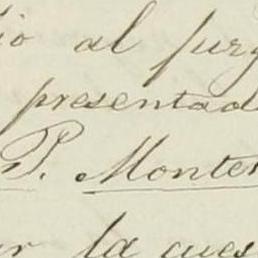 io al juzg
presentad
P. Monter
ar la cues